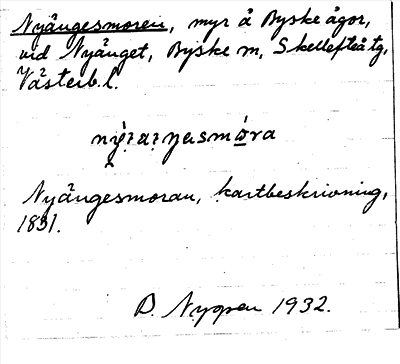 Nyängesmoren, myr å Byske ägor,
vid Nyänget, Byske sn, Skellefteå tg,
Västerb. l.
Nyängesmoran, kartbeskrivning,
1831.
D. Nygren 1932.